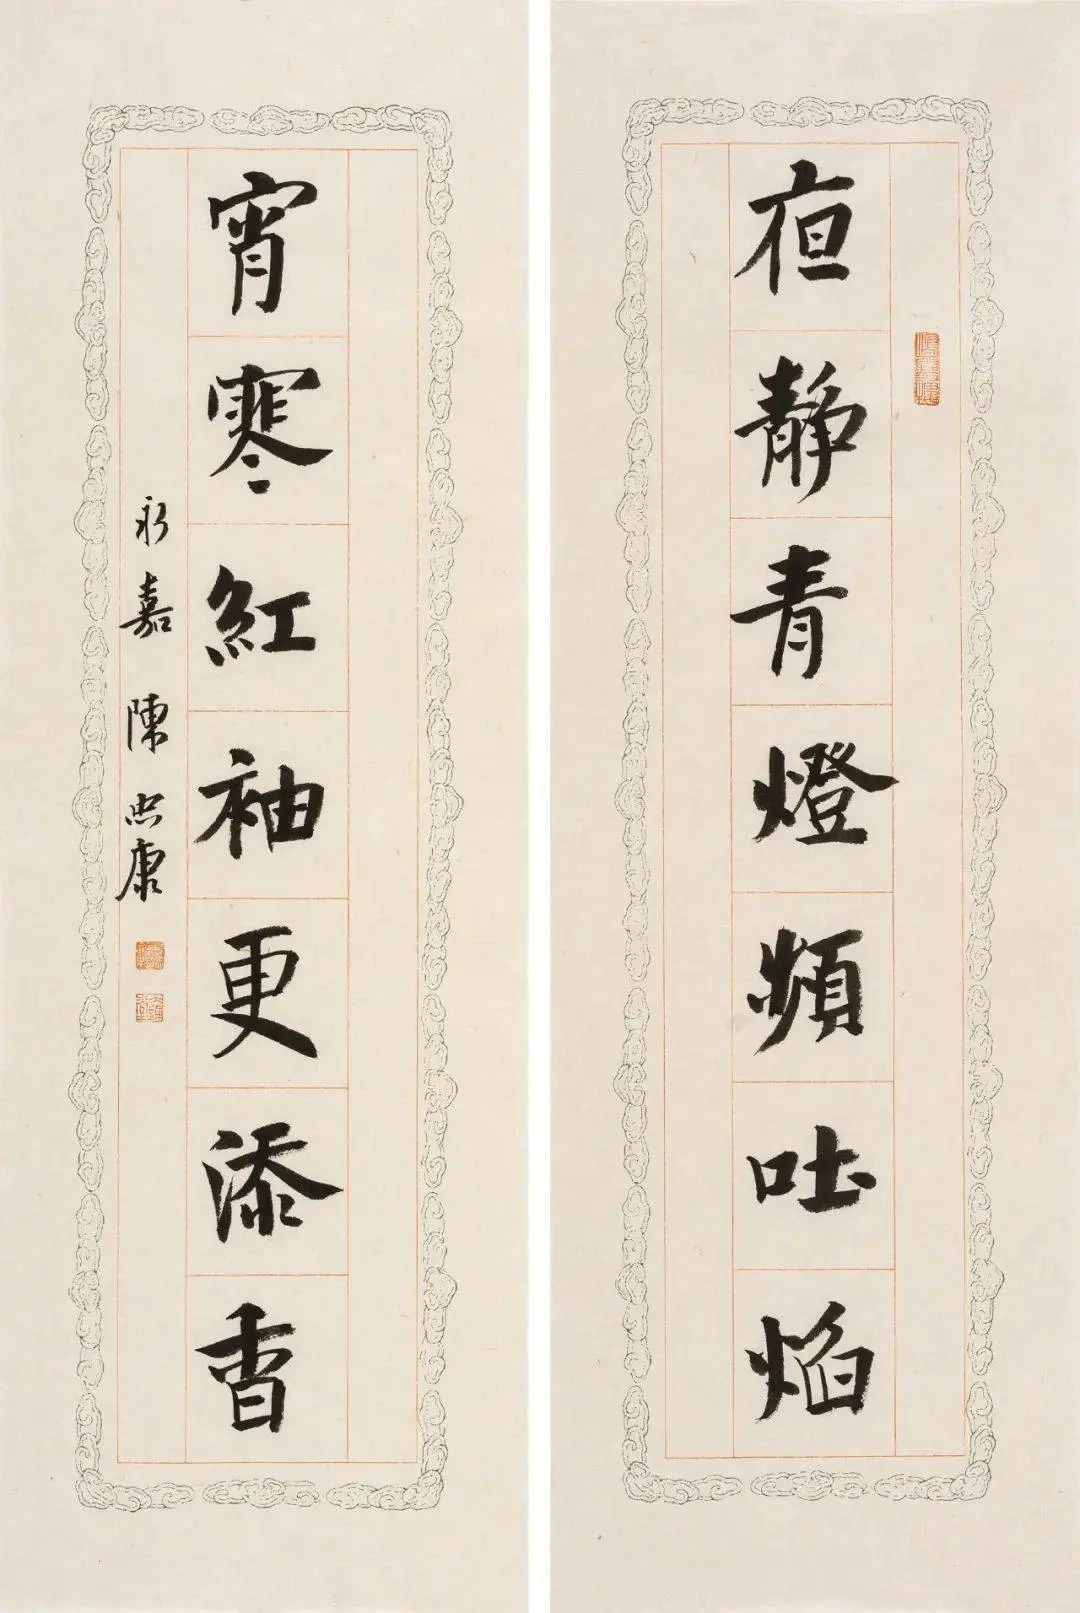 夜静青燈頻吐焰
宵寒紅袖更添香
永嘉陳忠康